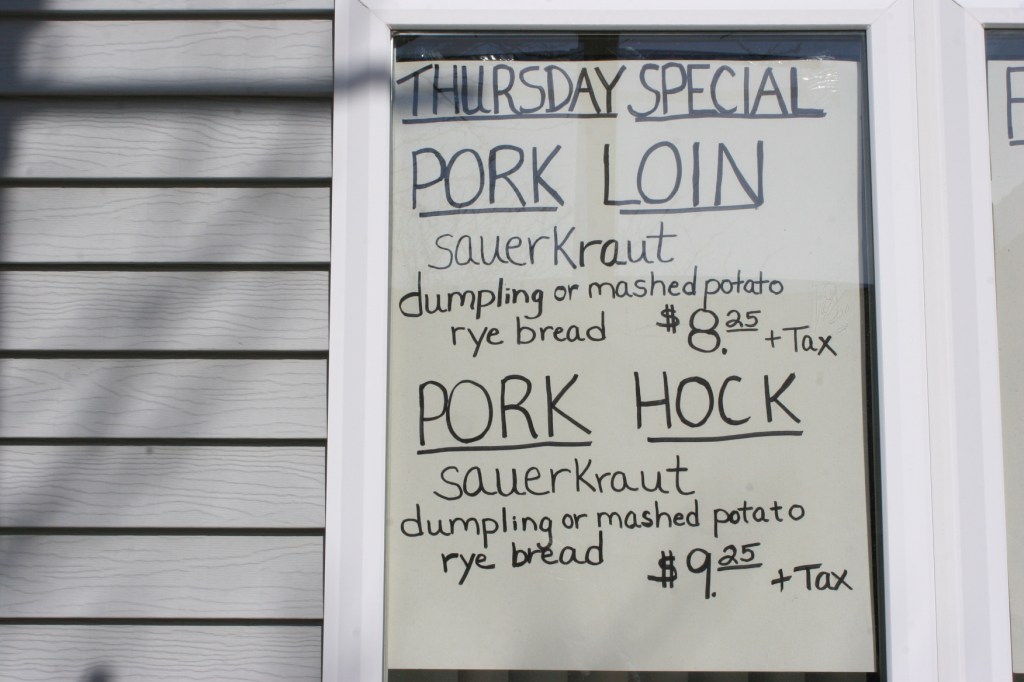 THURSDAY SPECIAL
PORK LOIN
sauerkraut
dumpling or mashed potato
rye bread $8.25 + Tax
PORK HOCK
sauerkraut
dumpling or mashed potato
rye bread $9.25 + Tax